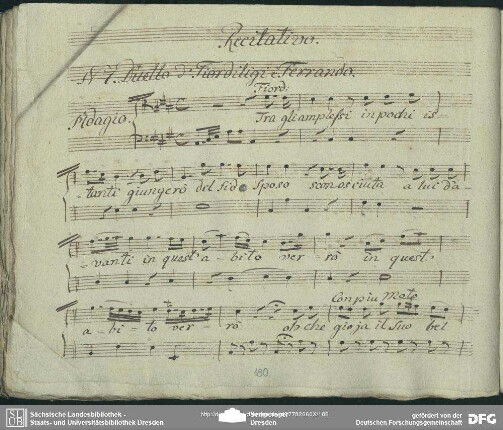 Recitativo.
N 7. Duetto di Fiordiligi e Ferrando.
Fiord:
Adagio.
Tra gli amplessi in pochi is
-tanti giungerò del fido sposo sconosciuta a lui da-
-vanti in quest' a-bito ver-rò in quest'
Con piu Moto
a-bi-to ver rò oh che gioja il suo bel
190
Sächsische Landesbibliothek -
Staats- und Universitätsbibliothek Dresden
Dresden
gefördert von der
Deutschen Forschungsgemeinschaft
DFG